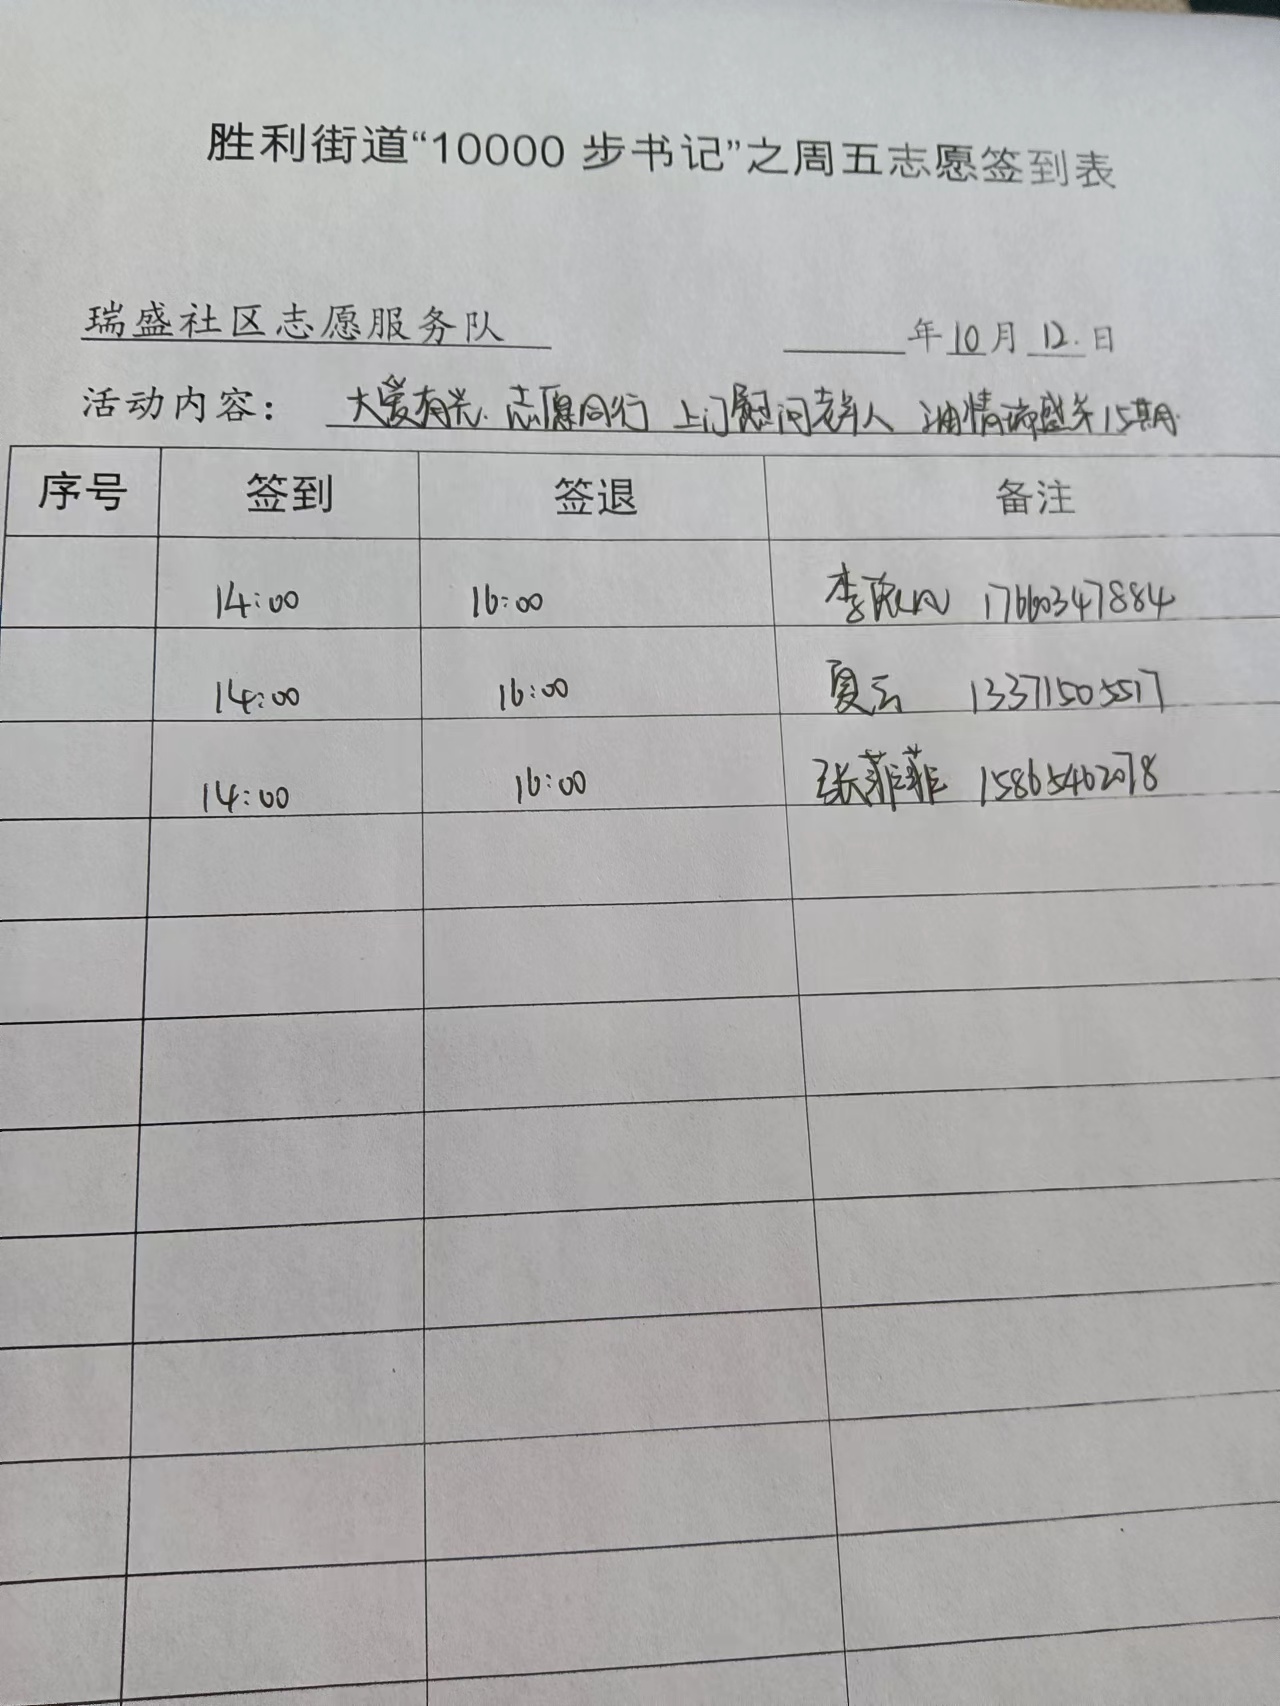 胜利街道“10000 步书记”之周五志愿签到表
瑞盛社区志愿服务队 年 10 月 12. 日
活动内容： 大爱有光. 志愿同行 上门慰问老年人 油情瑞盛第15期.
序号 签到 签退 备注
14:00 16:00 李 17660347884
14:00 16:00 夏云 13371505517
14:00 16:00 张菲菲 15865462078